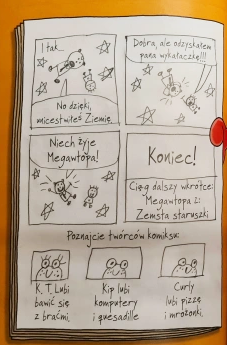 I tak...
No dzięki,
zniszczyłeś Ziemię.
Dobra, ale odzyskałem
pana wykałaczkę!!!
Niech żyje
Megawtopa!
Koniec!
Ciąg dalszy wkrótce:
Megawtopa 2:
Zemsta staruszki
Poznajcie twórców komiksu:
K. T. Lubi
bawić się
z braćmi.
Kip lubi
komputery
i quesadille
Curly
lubi pizzę
i mrożonki.